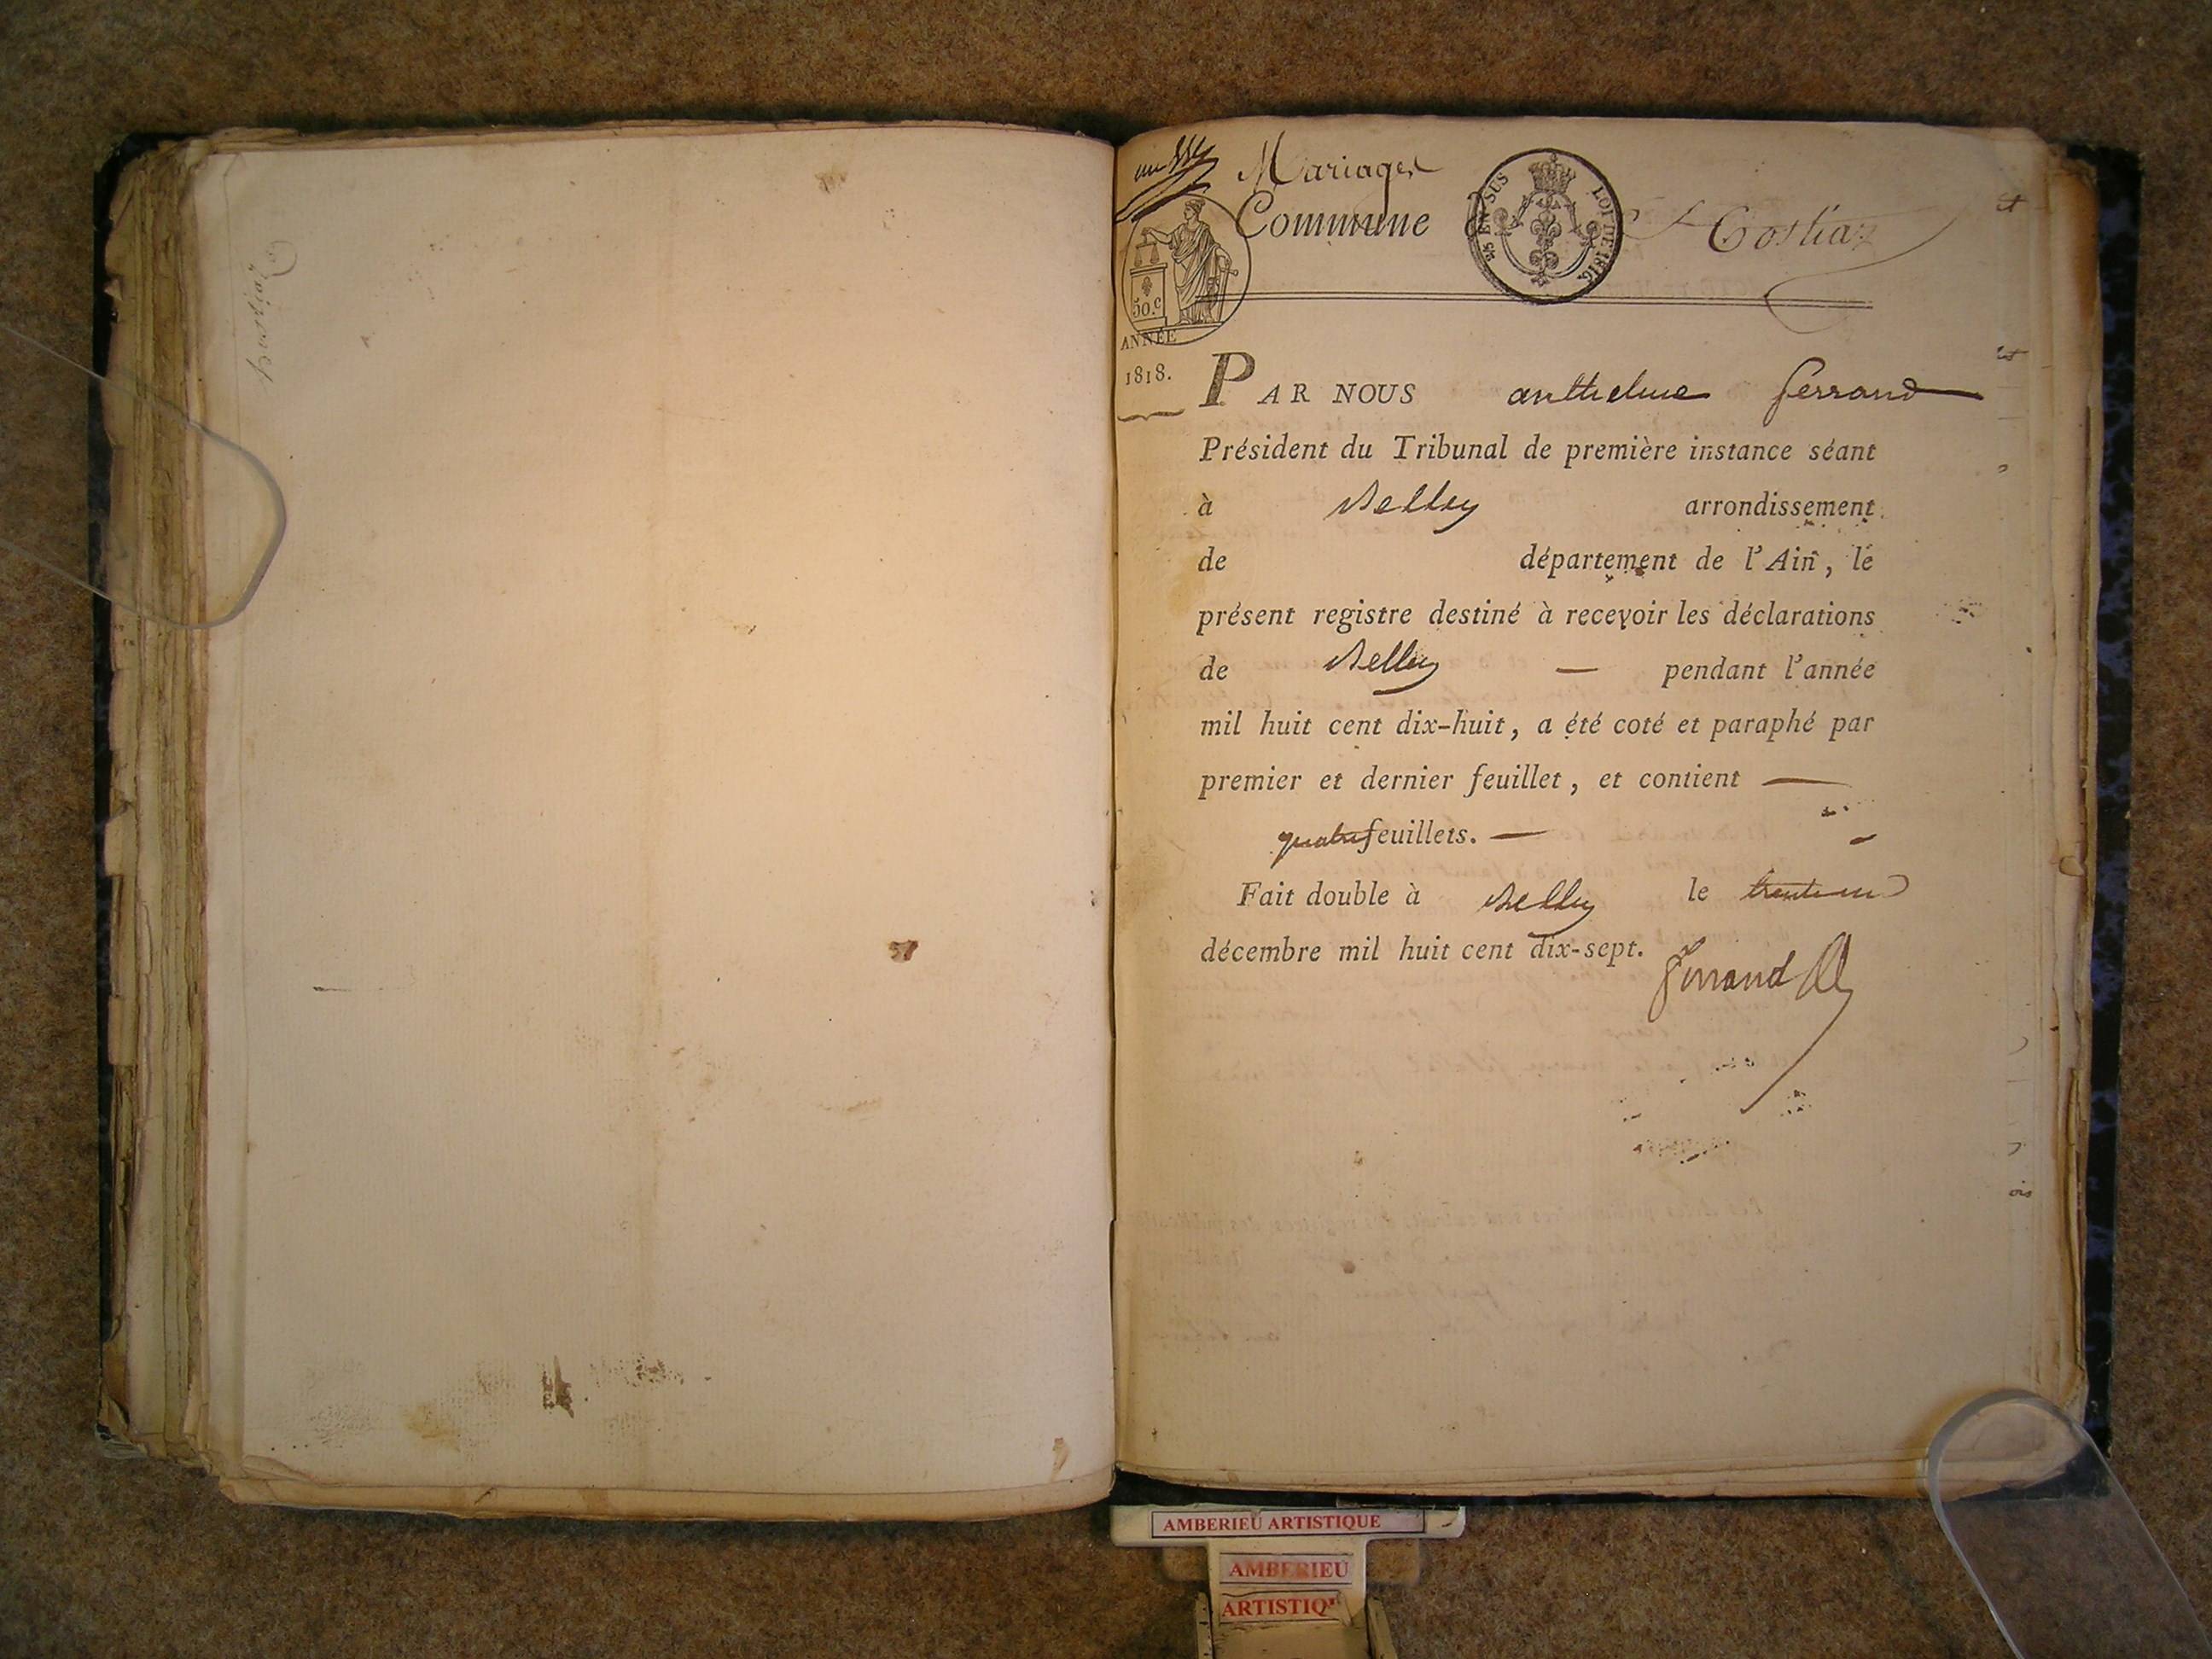 Mariages
Commune d
¼ EN SUS LOI DE 1816.
Costia
50.c
ANNÉE
1818.
PAR NOUS anthelme ferrand
Président du Tribunal de première instance séant
à Belley arrondissement
de département de l'Ain, le
présent registre destiné à recevoir les déclarations
de Belley — pendant l'année
mil huit cent dix-huit, a été coté et paraphé par
premier et dernier feuillet, et contient —
quatre feuillets. —
Fait double à Belley le trente un
décembre mil huit cent dix-sept.
ferrand
AMBERIEU ARTISTIQUE
AMBERIEU
ARTISTIQ